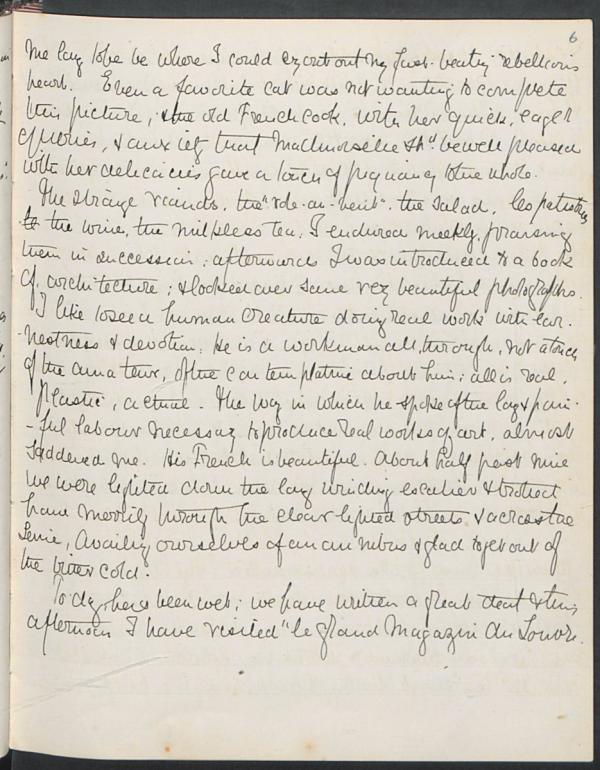 6
me long to be where I could cry out my fast-beating rebellious
heart. Even a favorite cat was not wanting to complete
this picture, & the old French cook, with her quick, eager
queries, & anxiety that Mademoiselle shd be well pleased
with her delicacies gave a touch of piquancy to the whole.
The strange viands, the "vole-au-vent", the salad, les petits
to the wine, the milkless tea, I endured meekly, praising
them in succession; afterwards I was introduced to a book
of architecture; & looked over some very beautiful photographs.
I like to see a human creature doing real work with ear-
-nestness & devotion. He is a workman all through, not a touch
of the amateur, of the contemplative about him; all is real,
plastic, actual. The way in which he spoke of the long & pain-
-ful labour necessary to produce real works of art, almost
saddened me. His French is beautiful. About half past nine
we were lighted down the long winding escalier & trotted
home merrily through the clear lighted streets & across the
Seine, availing ourselves of an omnibus & glad to get out of
the bitter cold.
To day has been wet; we have written a great deal & this
afternoon I have visited "le grand Magazin du Louvre.